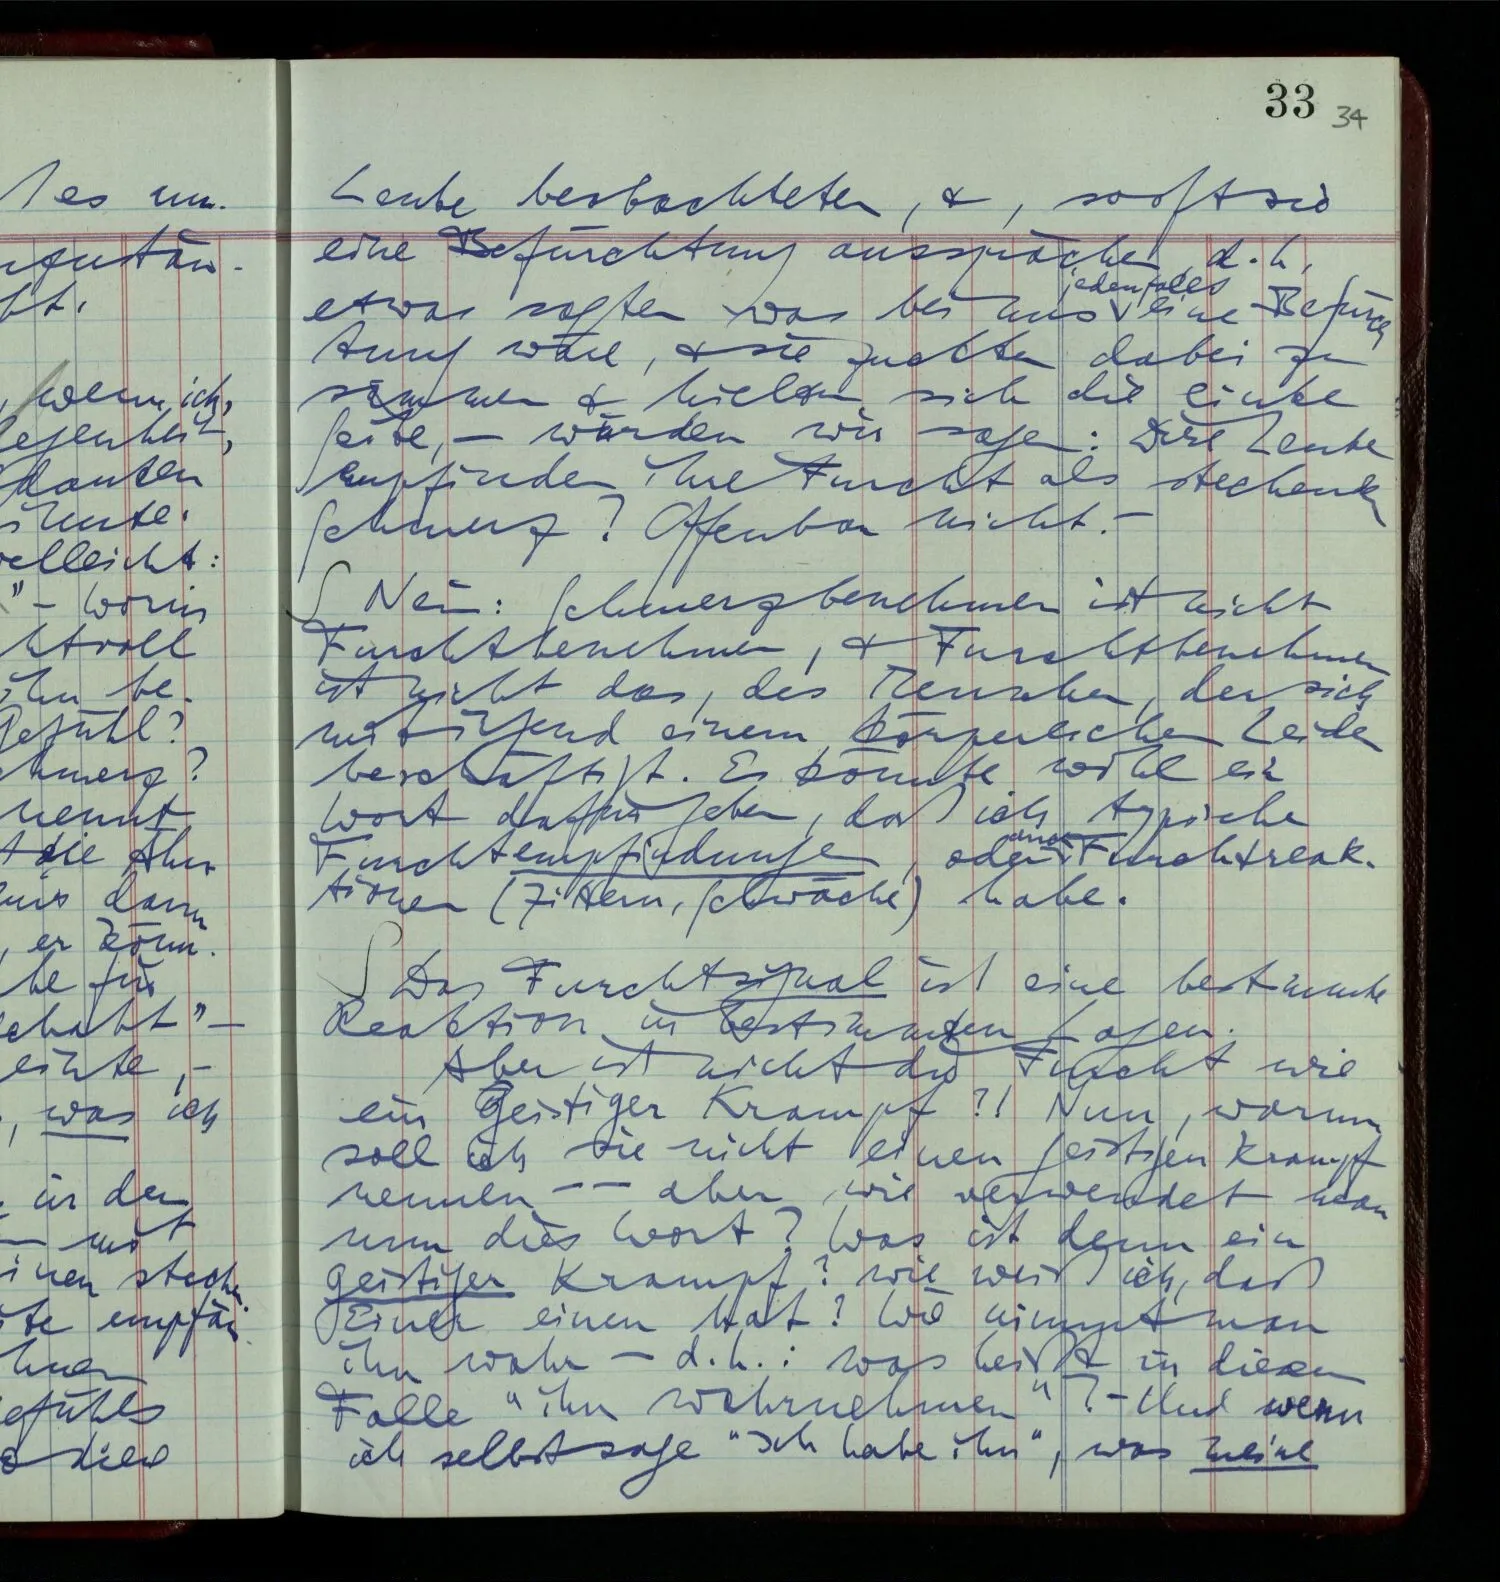 33 34
les nun.
wenn ich,
danken
vielleicht:
" - worin
ihn be-
Gefühl?
Schmerz?
nennt
die
uns dann
, er könn-
be für
gehabt" -
, was ich
in der
— mit
einen steche
te empfän
Gefühls
Leute beobachteten, & , sooft sie
eine Befürchtung aussprächen, d.h.
etwas sagten was bei uns jedenfalls eine Befürch
tung wäre, & sie zuckten dabei zu
sammen & hielten sich die linke
Seite, – würden wir sagen: Diese Leute
empfinden ihre Furcht als stechenden
Schmerz? Offenbar nicht. –
∫ Nein: Schmerzbenehmen ist nicht
Furchtbenehmen, & Furchtbenehmen
ist nicht das, des Menschen, der sich
mit irgend einem körperlichen Leiden
beschäftigt. Es könnte wohl ein
Wort dafür geben, daß ich typische
Furchtempfindungen, oder auch Furchtreak-
tionen (Zittern, Schwäche) habe.
∫ Das Furchtsignal ist eine bestimmte
Reaktion in bestimmten Lagen.
Aber ist nicht die Furcht wie
ein geistiger Krampf?! Nun, warum
soll ich sie nicht einen geistigen Krampf
nennen –– aber wie verwendet man
nun dies Wort? Was ist denn ein
geistiger Krampf? Wie weiß ich, daß
Einer einen hat? Wie nimmt man
ihn wahr – d.h.: was heißt in diesem
Falle "ihn wahrnehmen"? – Und wenn
ich selbst sage "Ich habe ihn", was meine